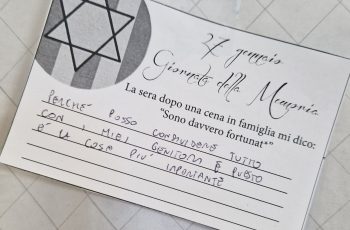 27 gennaio
Giornata della Memoria
La sera dopo una cena in famiglia mi dico:
"Sono davvero fortunat*"
PERCHÉ POSSO CONDIVIDERE TUTTO
CON I MIEI GENITORI E QUESTO
È LA COSA PIÙ IMPORTANTE